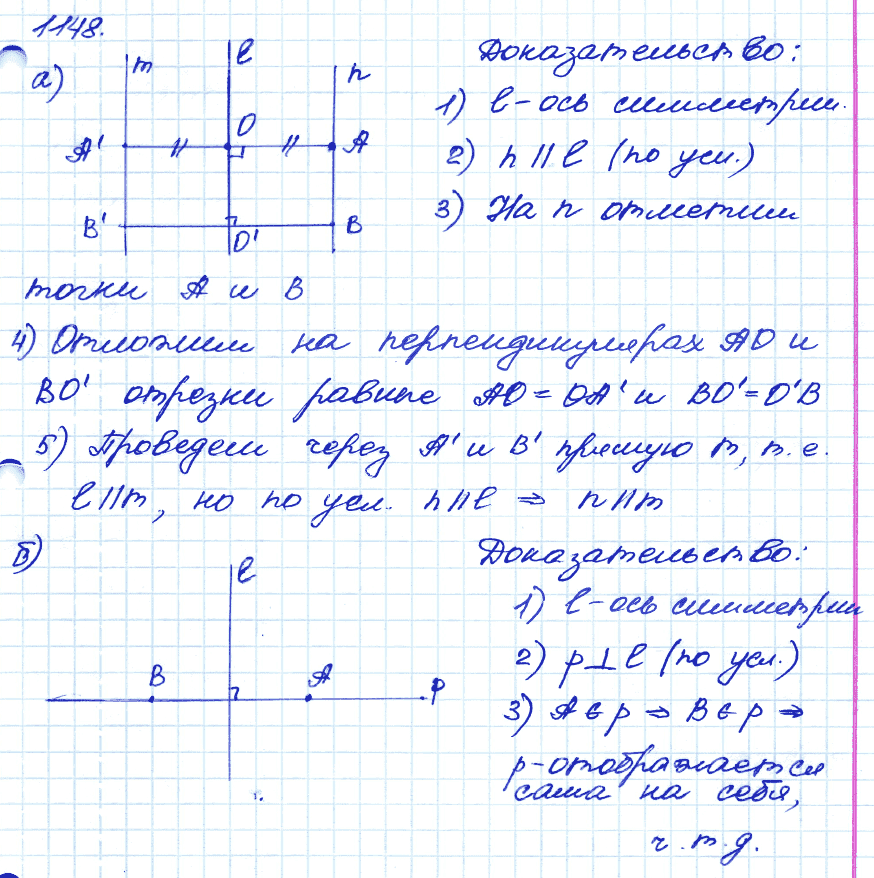 1148.
а)
m
l
n
A'
O
A
B'
O'
B
Доказательство:
1) l - ось симметрии.
2) n || l (по усл.)
3) На n отметим
точки A и B
4) Отложим на перпендикулярах AO и
BO' отрезки равные AO = OA' и BO' = O'B
5) Проведем через A' и B' прямую m, т. е.
l || m, но по усл. n || l ⇒ n || m
б)
l
B
A
p
Доказательство:
1) l - ось симметрии
2) p ⊥ l (по усл.)
3) A ∈ p ⇒ B ∈ p ⇒
p - отображается
сама на себя,
ч. т. д.